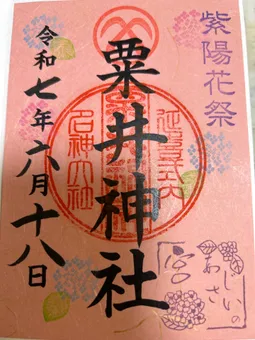 紫陽花祭
粟井神社
令和七年六月十八日
延喜式内
名神大社
あじさいの
宮